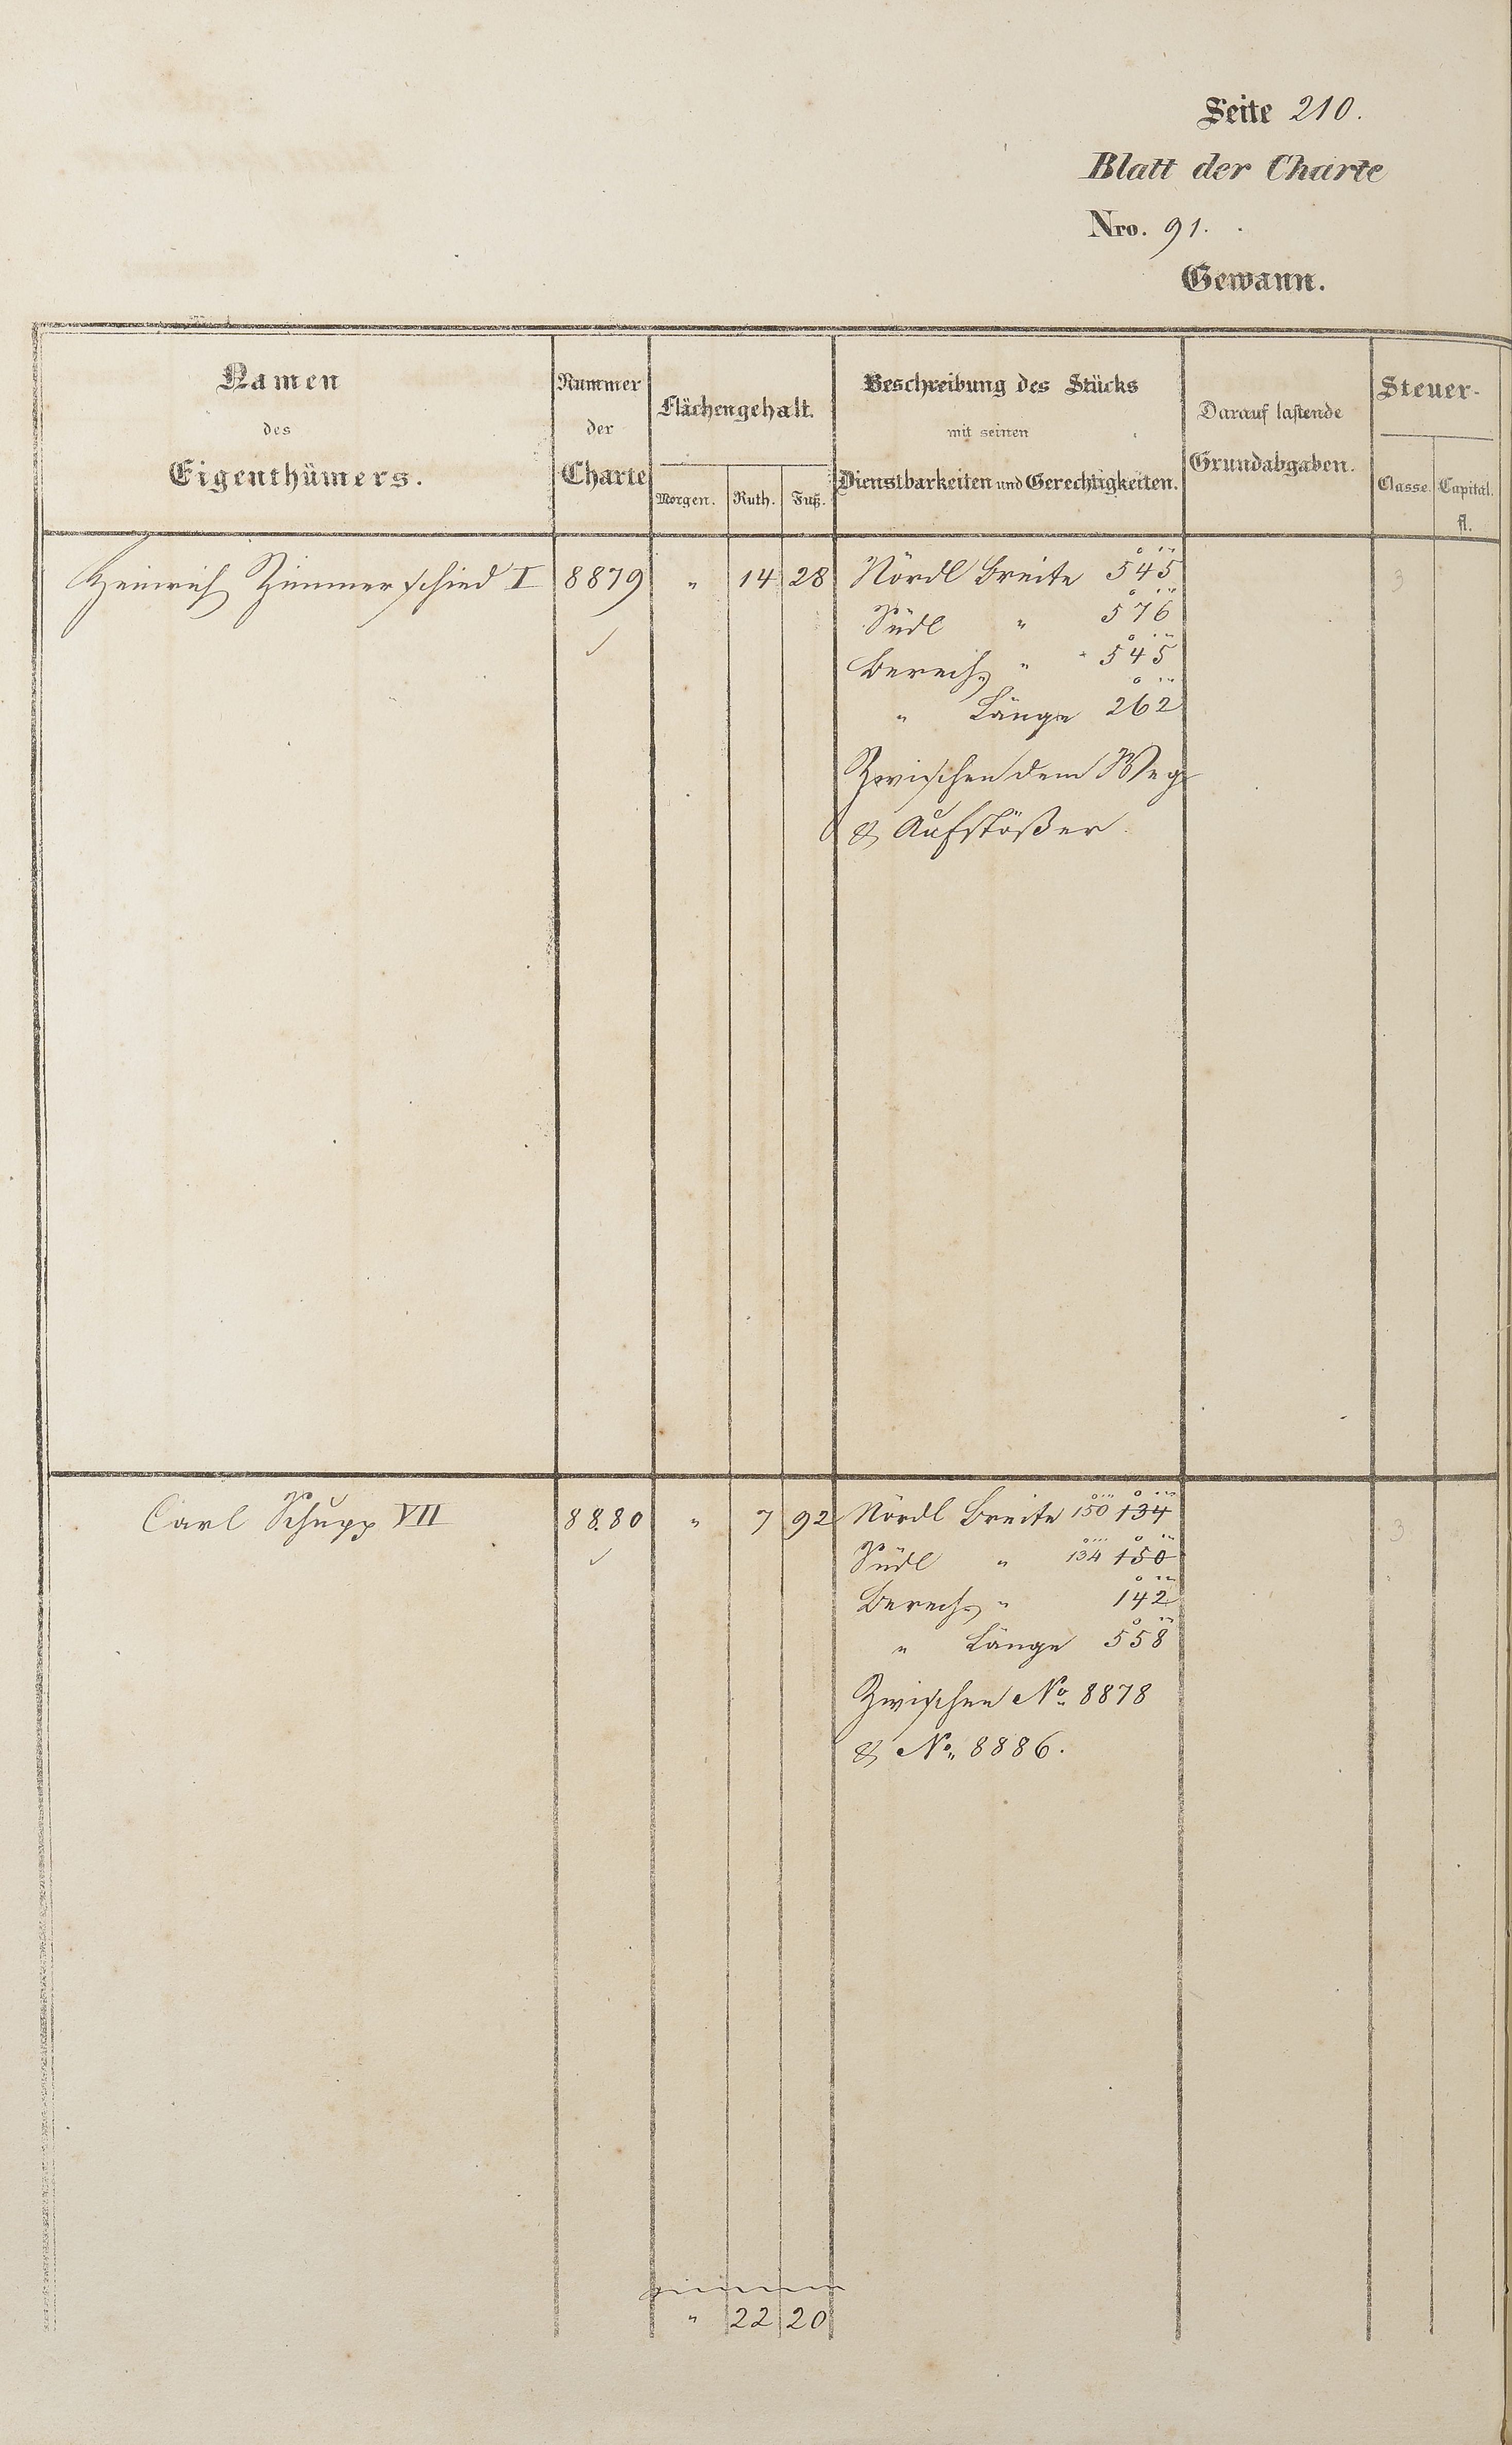 Seite 210.
Blatt der Charte
Nro. 91.
Gewann.
Namen
des
Eigenthümers.
Nummer
der
Charte
Flächengehalt.
Morgen. Ruth. Fuß.
Beschreibung des Stücks
mit seinen
Dienstbarkeiten und Gerechtigkeiten.
Darauf lastende
Grundabgaben.
Steuer-
Classe. Capital.
fl.
Heinrich Zimmerschied I 8879 " 14 28 Nördl Breite 5° 4' 5"
Südl " 5° 7' 6"
Berech. " 5° 4' 5"
" Länge 2° 6' 2"
Zwischen dem Weg
& Aufstößer.
3
Carl Schupp VII 8880 " 7 92 Nördl Breite 1° 5' 0" 1° 3' 4"
Südl " 1° 3' 4" 1° 5' 0"
Berech. " 1° 4' 2"
" Länge 5° 5' 8"
Zwischen No. 8878
& No. 8886.
3
" 22 20